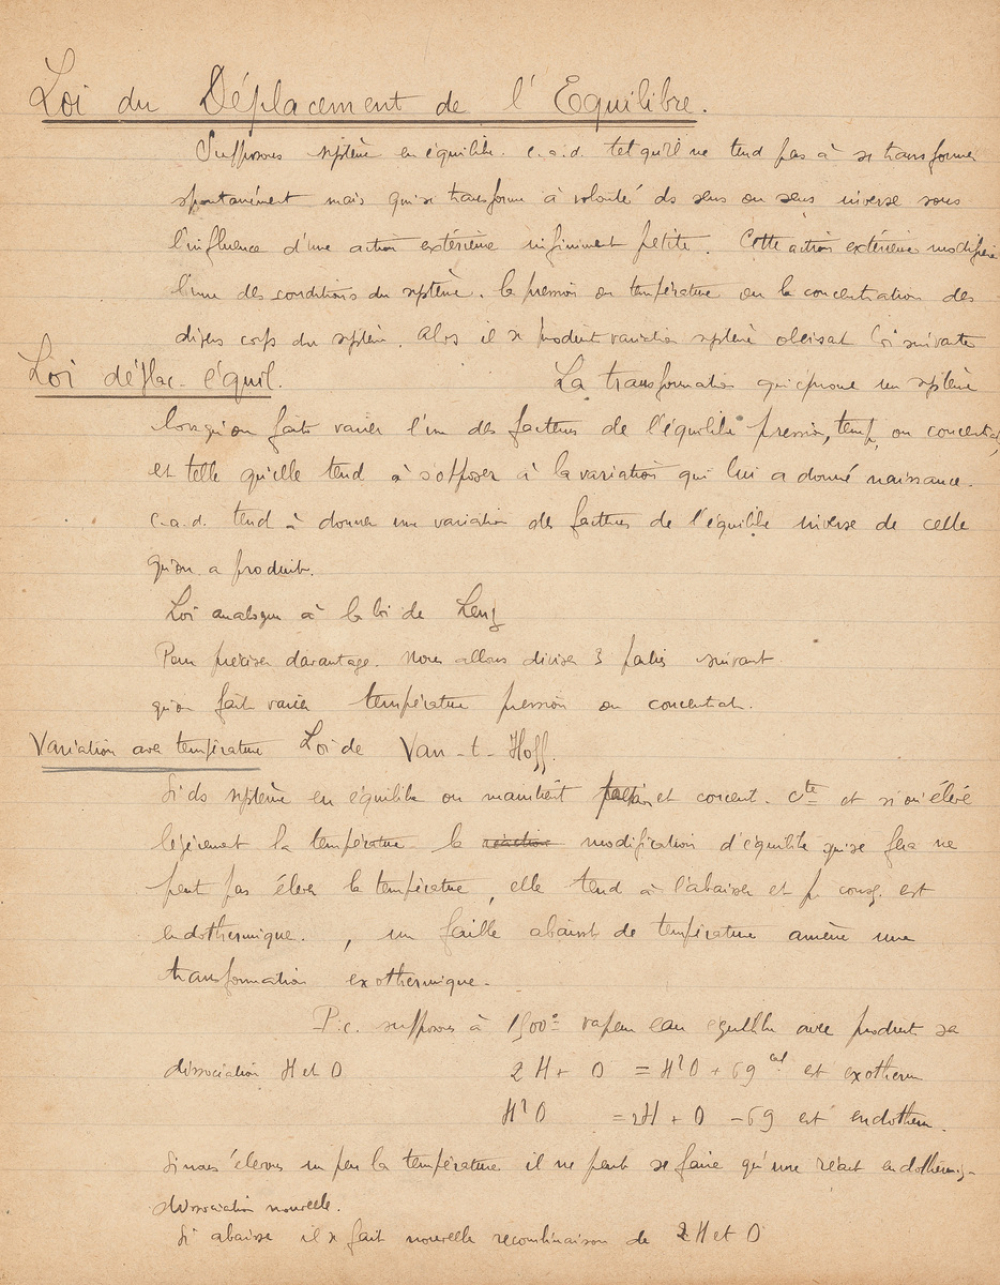 Loi du Déplacement de l'Equilibre.
Supposons système en équilibre. c.a.d. tel qu'il ne tend pas à se transformer
spontanément mais qui se transforme à volonté ds sens ou sens inverse sous
l'influence d'une action extérieure infiniment petite. Cette action extérieure modifiera
l'une des conditions du système. la pression ou température ou la concentration des
divers corps du système. Alors il se produit variation système obeisat loi suivante
Loi déplac- équil. La transformation qu'éprouve un système
lorsqu'on fait varier l'un des facteurs de l'équilibre pression, temp, ou concentrat,
est telle qu'elle tend à s'opposer à la variation qui lui a donné naissance.
c.a.d. tend à donner une variation des facteurs de l'équilibre inverse de celle
qu'on a produit.
Loi analogue à la loi de Lenz
Pour préciser davantage. Nous allons diviser 3 parties suivant
qu'on fait varier température pression ou concentrat.
Variation avec température Loi de Van-t-Hoff.
Si ds système en équilibre on maintient et concent. cte et si on élève
légèrement la température la réaction modification d'équilibre qui se fera ne
peut pas élever la température, elle tend à l'abaisser et p. conséq. est
endothermique. , un faible abaisst de température amène une
transformation exothermique.
P.c. supposons à 1500° vapeur eau équilibre avec produit sa
dissociation H et O 2H + O = H²O + 69 cal est exotherm
H²O = 2H + O - 69 est endotherm.
Si nous élevons un peu la température il ne peut se faire qu'une réact endothermiq-
dissociation nouvelle.
Si abaisse il se fait nouvelle recombinaison de 2H et O